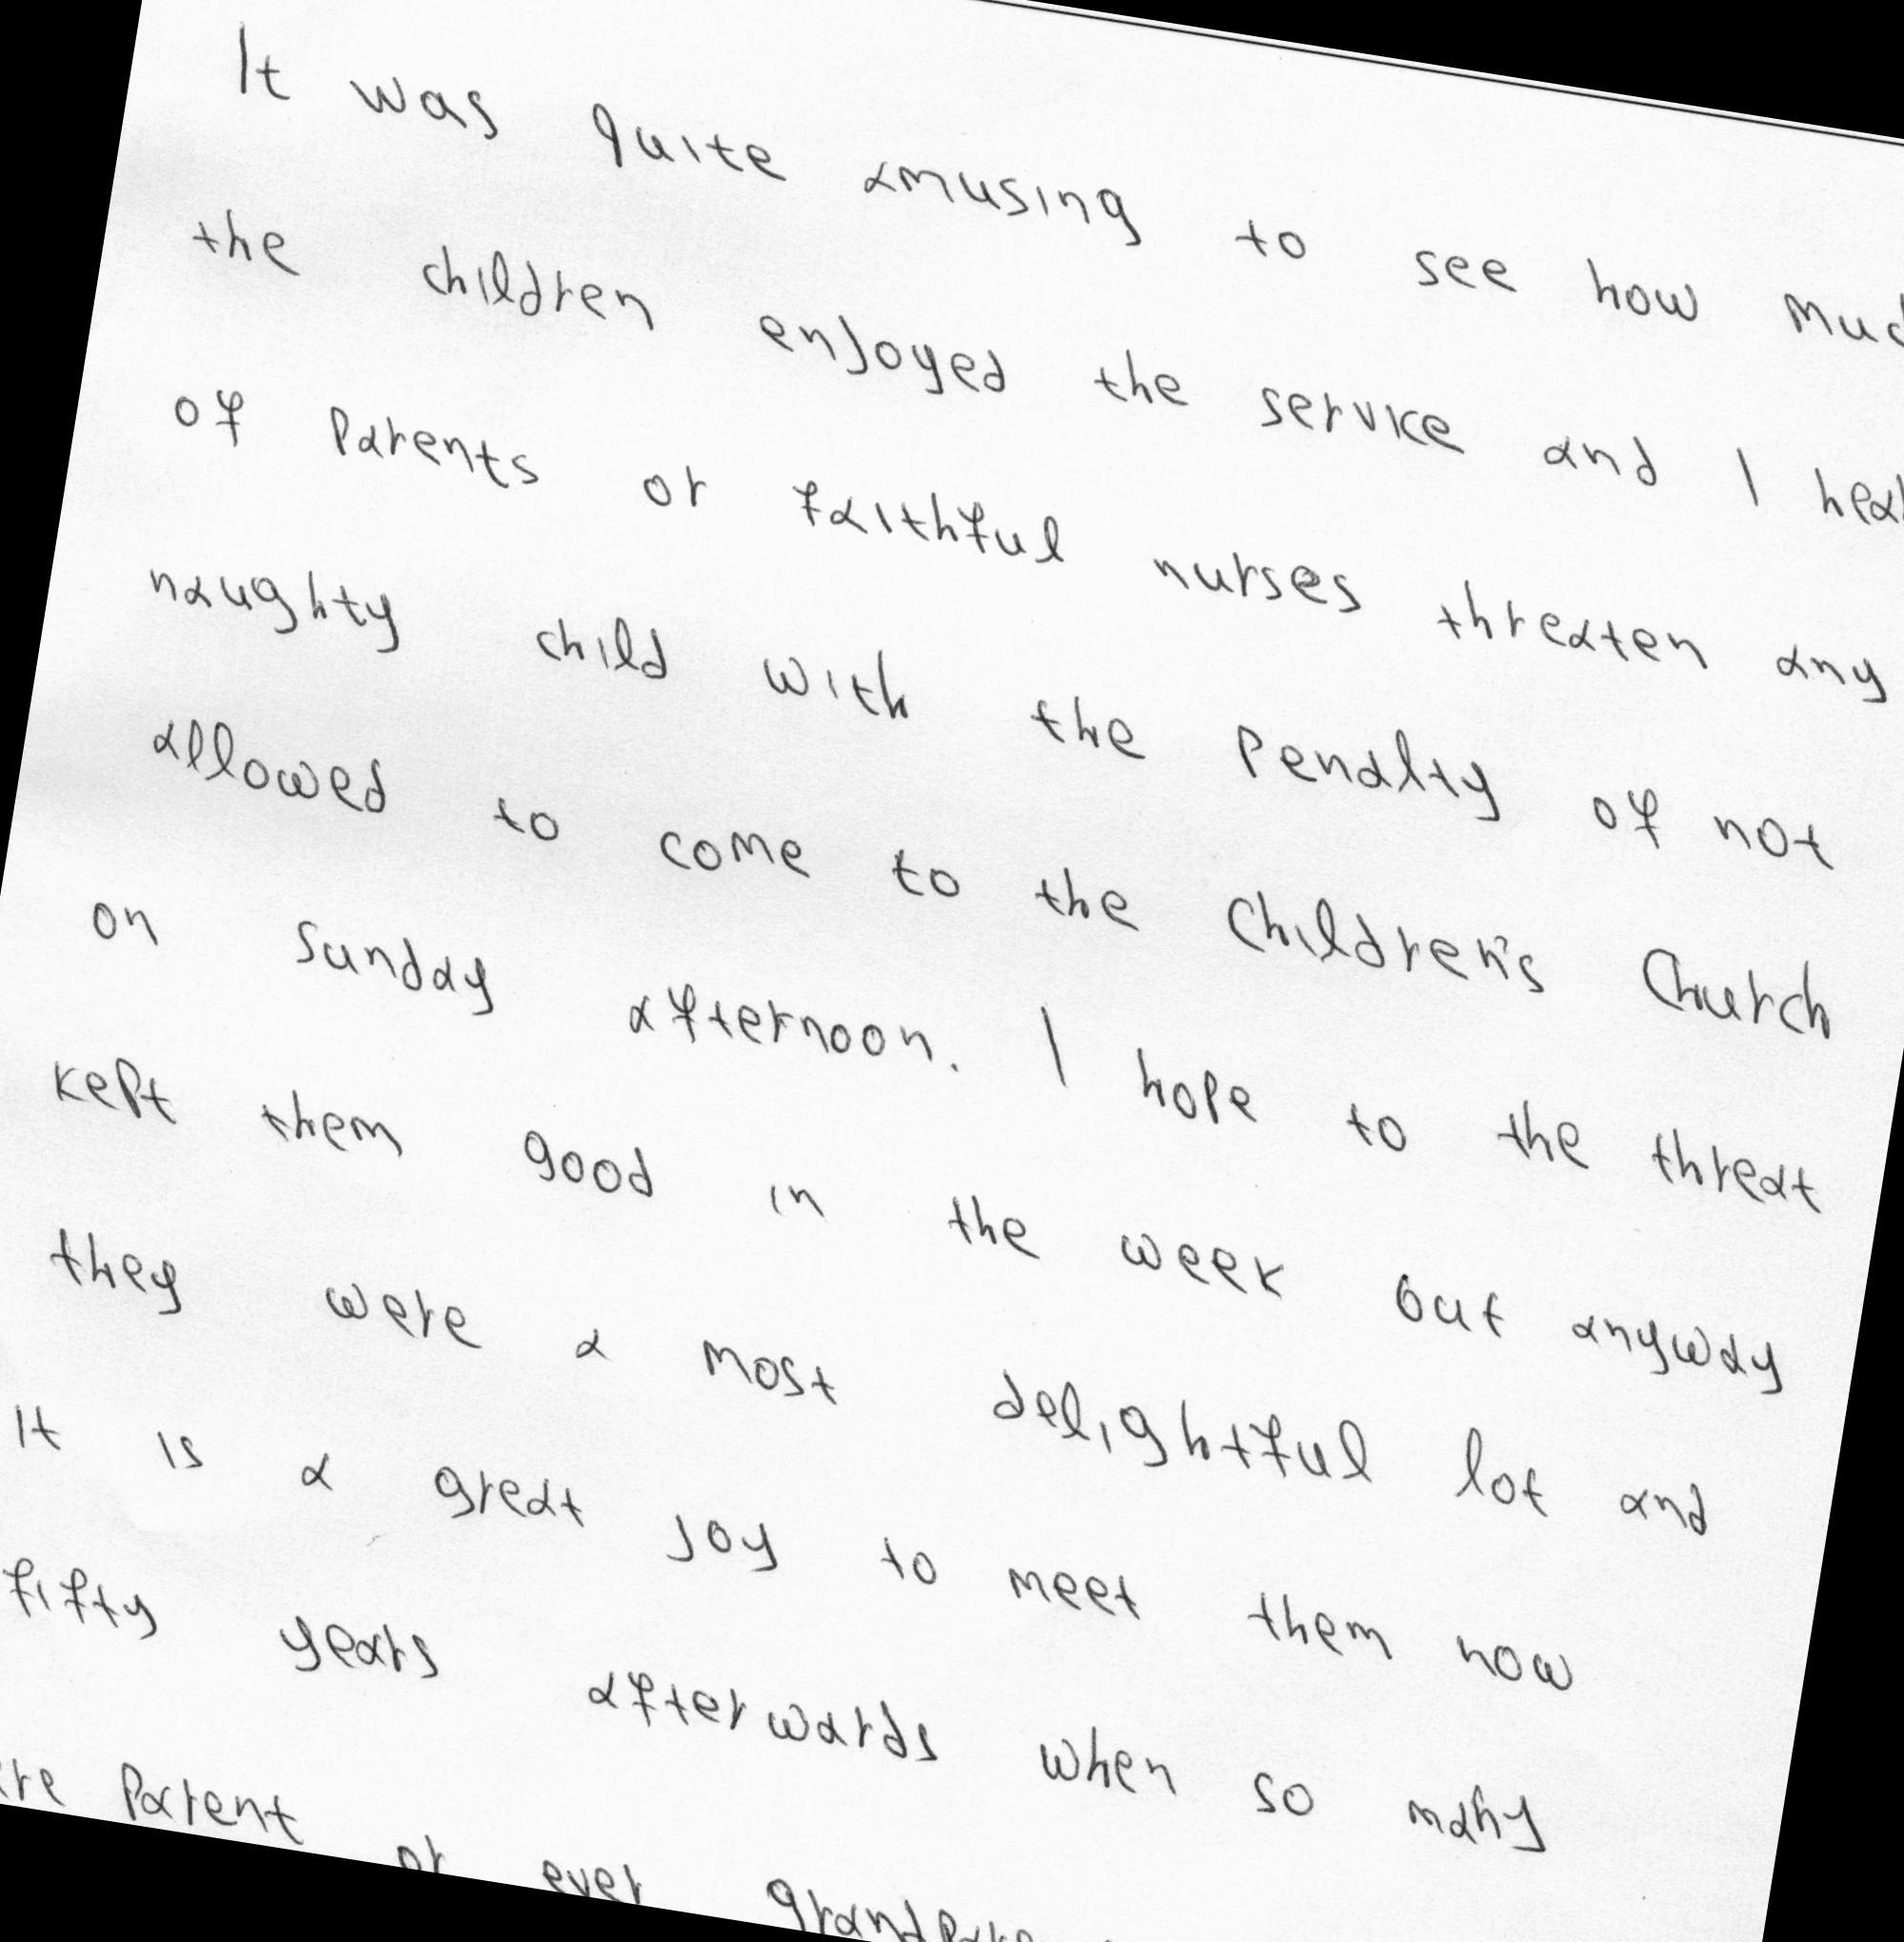 It was quite amusing to see how
the children enjoyed the service and I
of Parents or faithful nurses threaten any
naughty child with the Penalty of not
allowed to come to the Children's Church
on Sunday afternoon. I hope to the threat
kept them good in the week out anyway
they were a most delightful lot and
It is a great joy to meet them now
fifty years afterwards when so many
Parent or ever